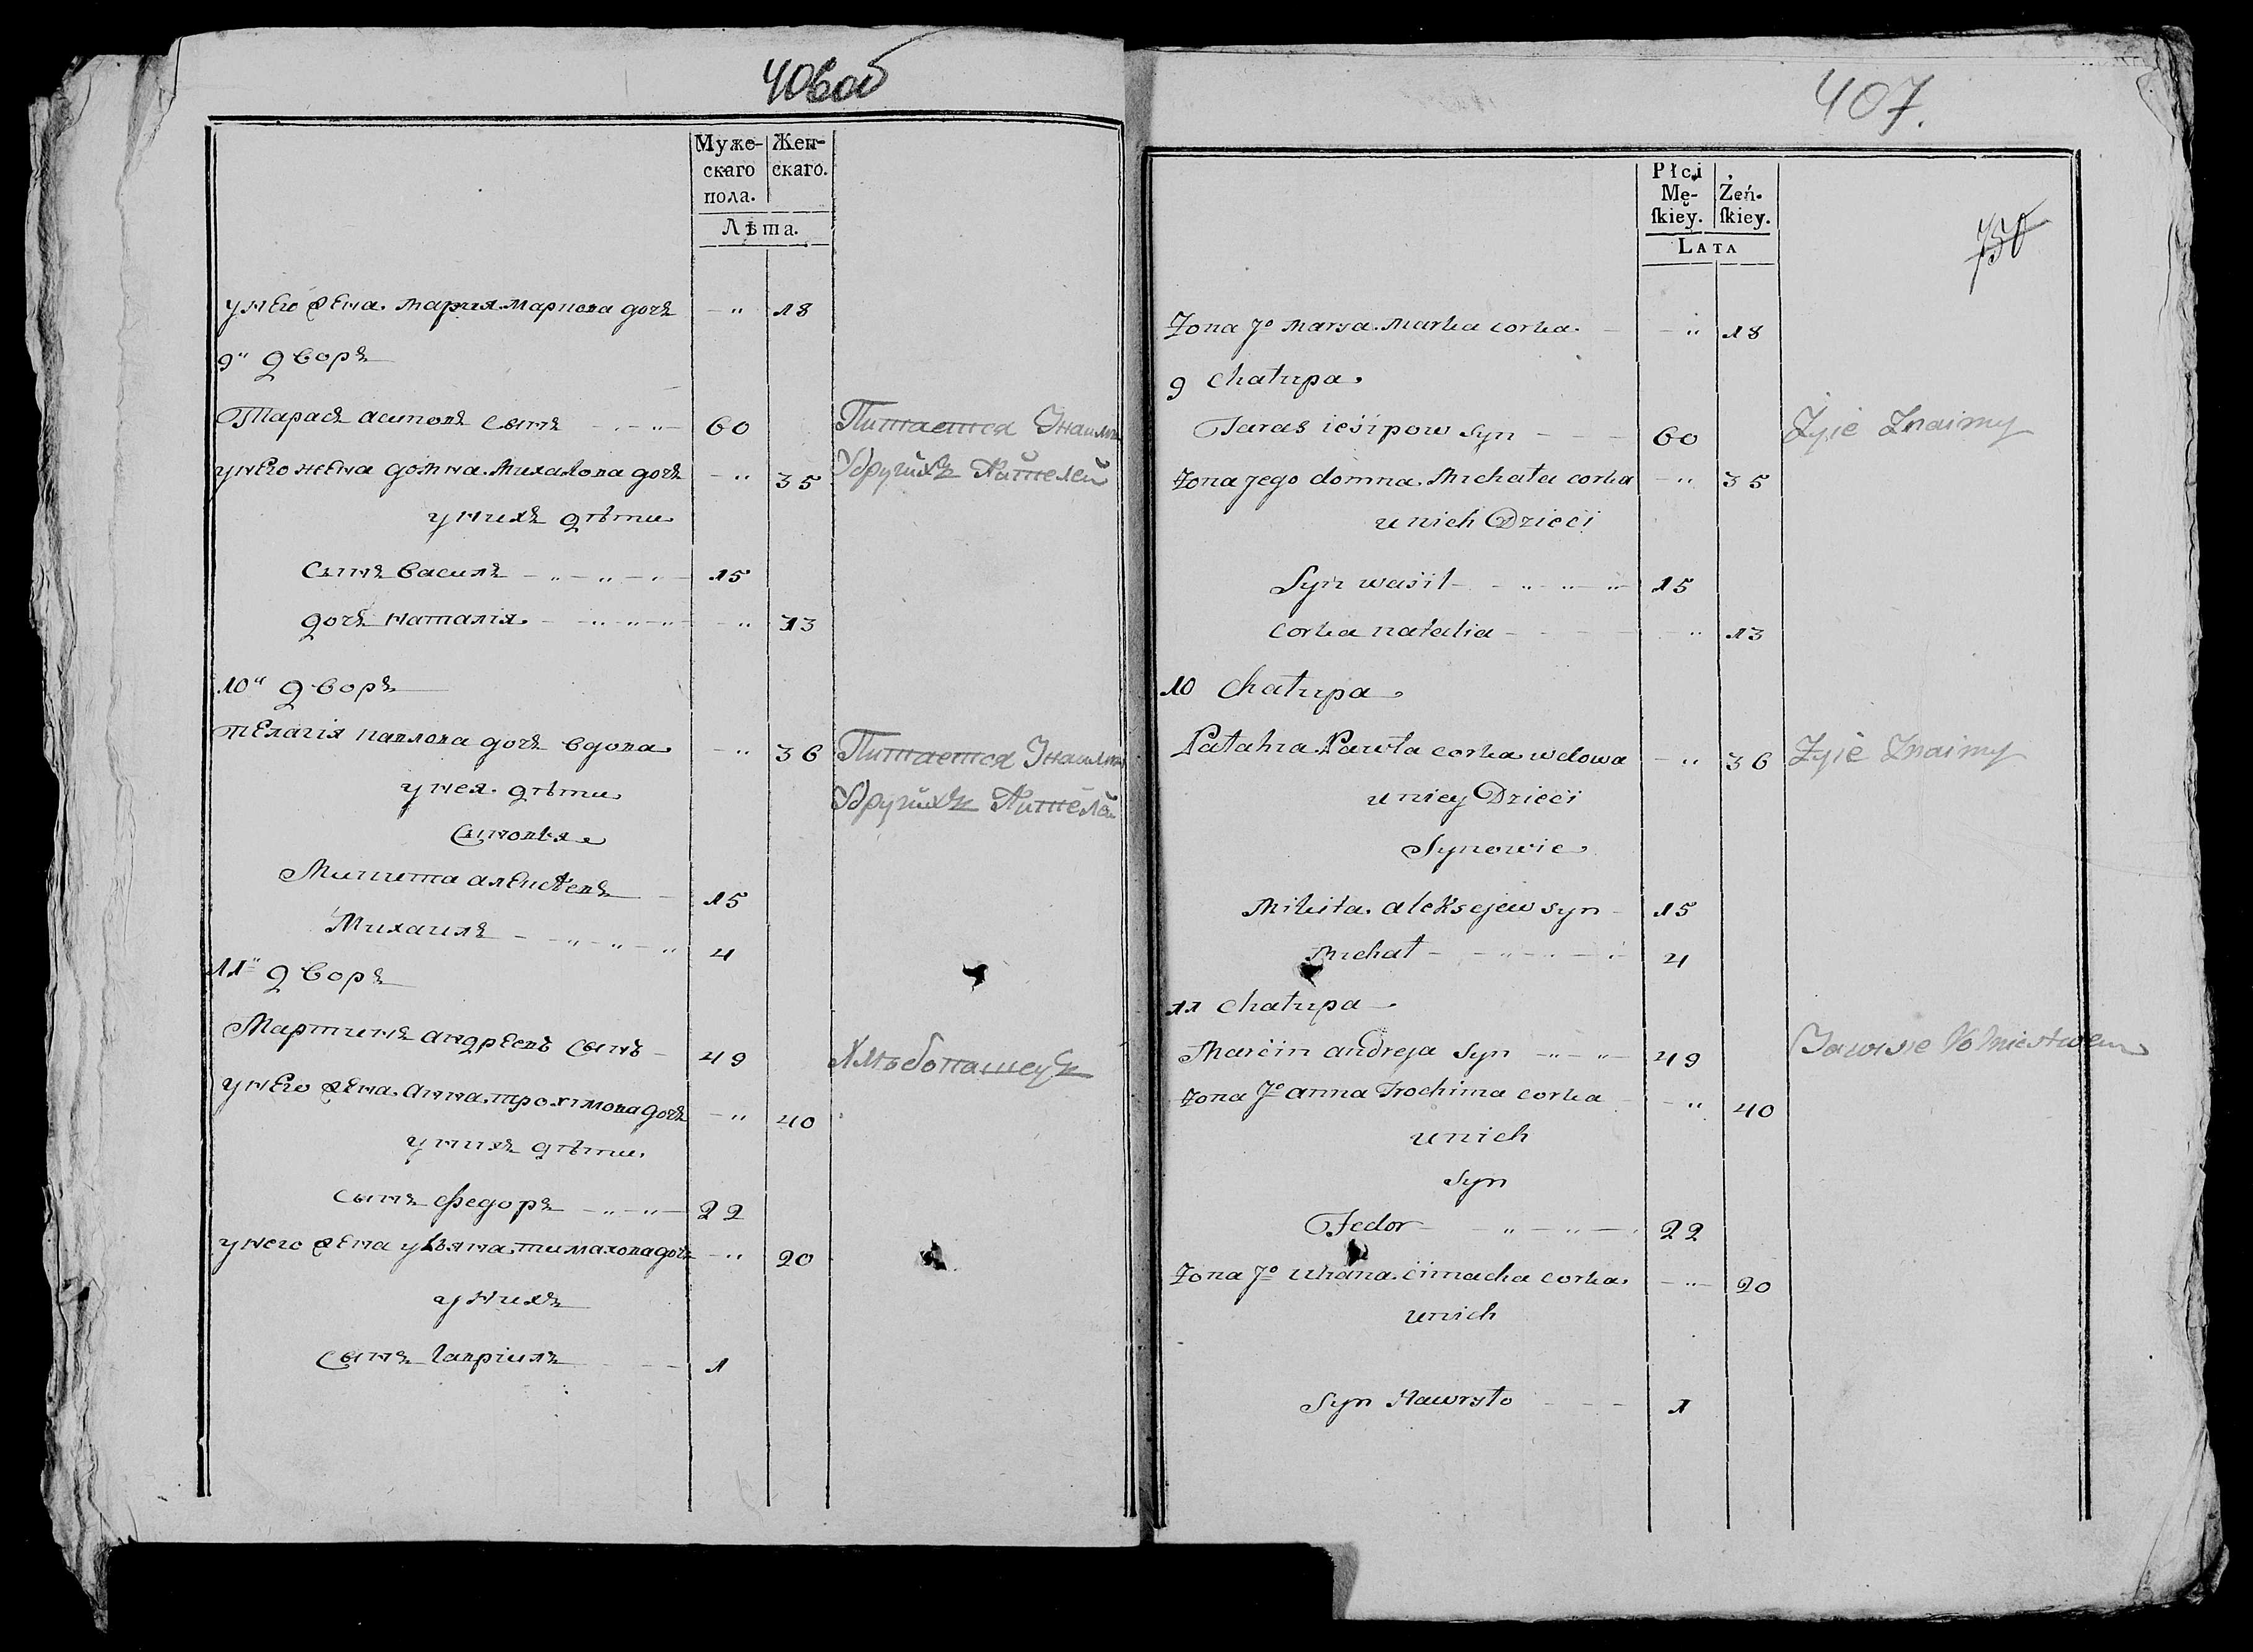 406об
Муже-
скаго
пола.
Жен-
скаго.
Лѣта.
у него жена Мария Маркова дочь — " 18
9" Дворъ
Тарасъ асиповъ сынъ — " — 60 Питается Знаймы
у него жена домна Михалова дочь — " 35 Удругихъ Жителей
у нихъ дѣти
сынъ василь — " — " — 15
дочь наталія — " — " — " 13
10" Дворъ
Пелагія павлова дочь вдова — " 36 Питается Знаймы
у нея дѣти Удругихъ Жителей
сыновья
Микита алексѣевъ — 15
Михаилъ — " — " — " 4
11" Дворъ
Мартинъ андреевъ сынъ — 49 Хлѣбопашецъ
у него жена Анна трохимова дочь — " 40
у нихъ дѣти
сынъ федоръ — " — " — 22
у него жена ульяна тимахова дочь — " 20
у нихъ
сынъ гавріилъ — 1
407.
Płci
Mę-
skiey.
Żeń-
skiey.
LATA
750
Żona Jº Marya Marka corka — " 18
9 Chałupa
Taras iesipow syn — 60 Żyie Znaimy
Żona Jego domna Michała corka — " 35
u nich Dzieci
Syn wasil — " — " — " 15
corka natalia — " 13
10 Chałupa
Pałahia Pawła corka wdowa — " 36 Żyie Znaimy
u niey Dzieci
Synowie
Mikita aleksejew syn — 15
Michał — " — " — 4
11 Chałupa
Marcin andreja syn — " — " — 49 Bawi sie Rolnictwem
Żona Jº anna Trochima corka — " 40
u nich
syn
Fedor — " — " — 22
Żona Jº uliana cimacha corka — " 20
u nich
Syn Hawryło — 1